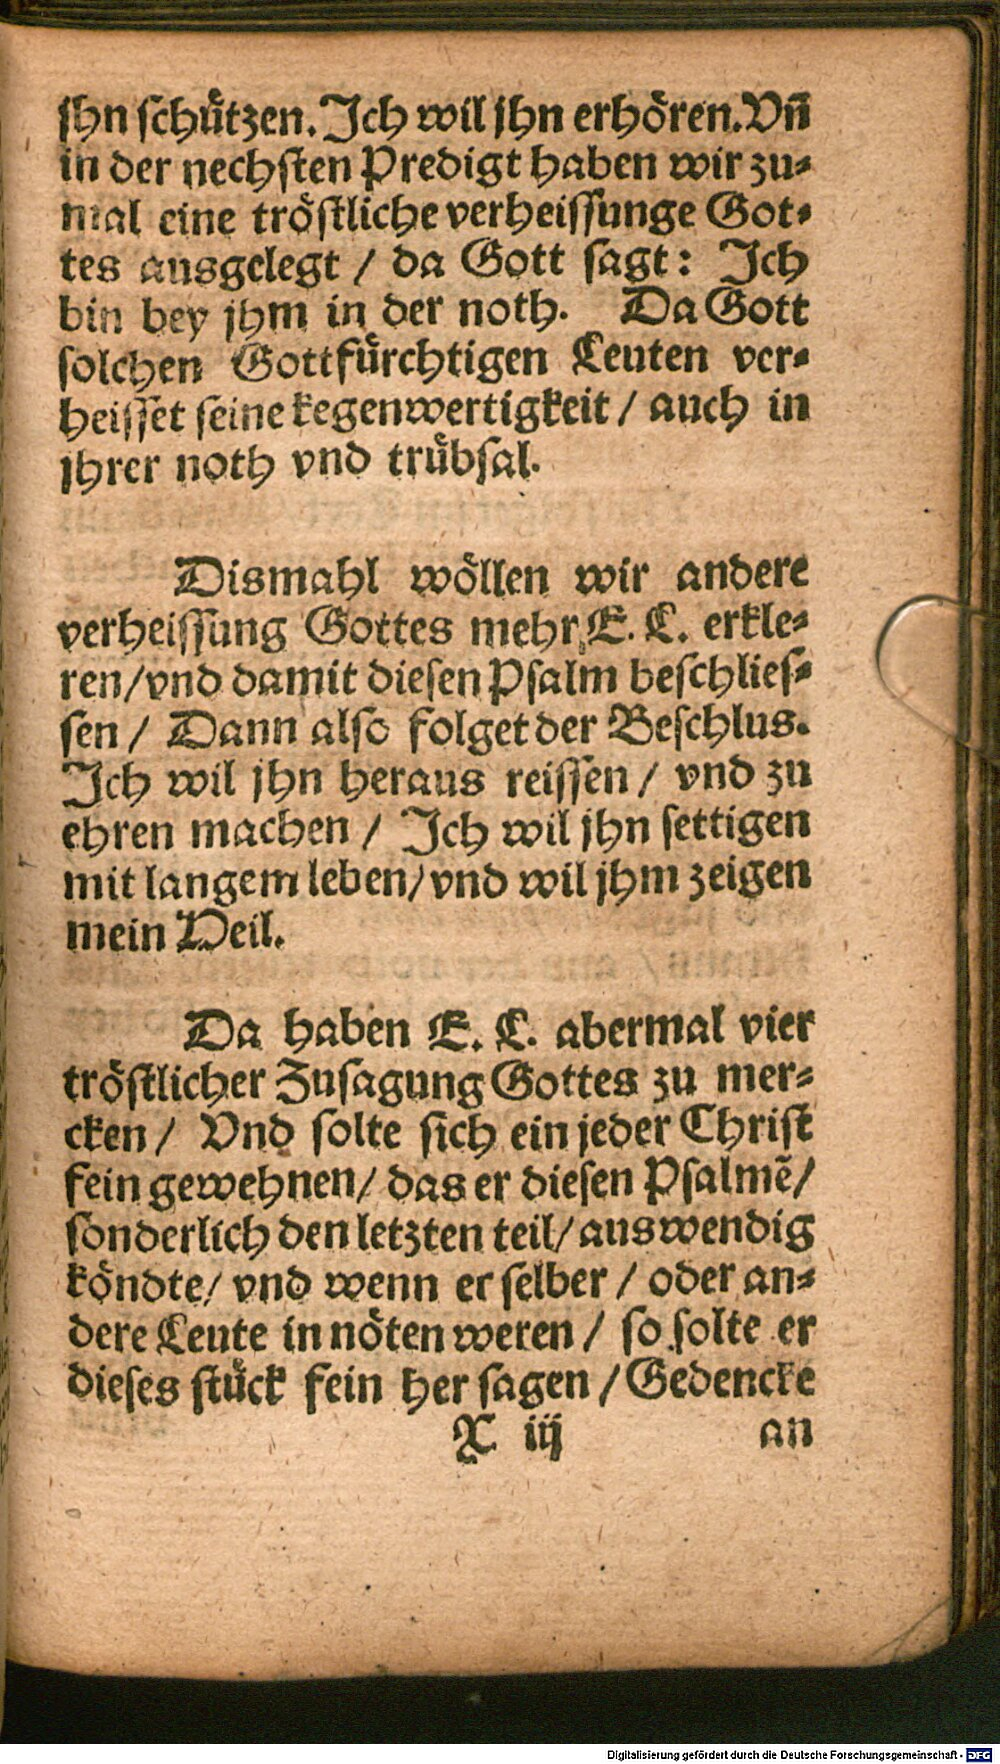 jhn schützen. Ich wil jhn erhören. Vñ
in der nechsten Predigt haben wir zu-
mal eine tröstliche verheissunge Got-
tes ausgelegt / da Gott sagt: Ich
bin bey jhm in der noth. Da Gott
solchen Gottfürchtigen Leuten ver-
heisset seine kegenwertigkeit / auch in
jhrer noth vnd trübsal.
Dismahl wöllen wir andere
verheissung Gottes mehr E. L. erkle-
ren / vnd damit diesen Psalm beschlies-
sen / Dann also folget der Beschlus.
Ich wil jhn heraus reissen / vnd zu
ehren machen / Ich wil jhn settigen
mit langem leben / vnd wil jhm zeigen
mein Heil.
Da haben E. L. abermal vier
tröstlicher Zusagung Gottes zu mer-
cken / Vnd solte sich ein jeder Christ
fein gewehnen / das er diesen Psalmẽ /
sonderlich den letzten teil / auswendig
köndte / vnd wenn er selber / oder an-
dere Leute in nöten weren / so solte er
dieses stück fein her sagen / Gedencke
X iij an
Digitalisierung gefördert durch die Deutsche Forschungsgemeinschaft - DFG